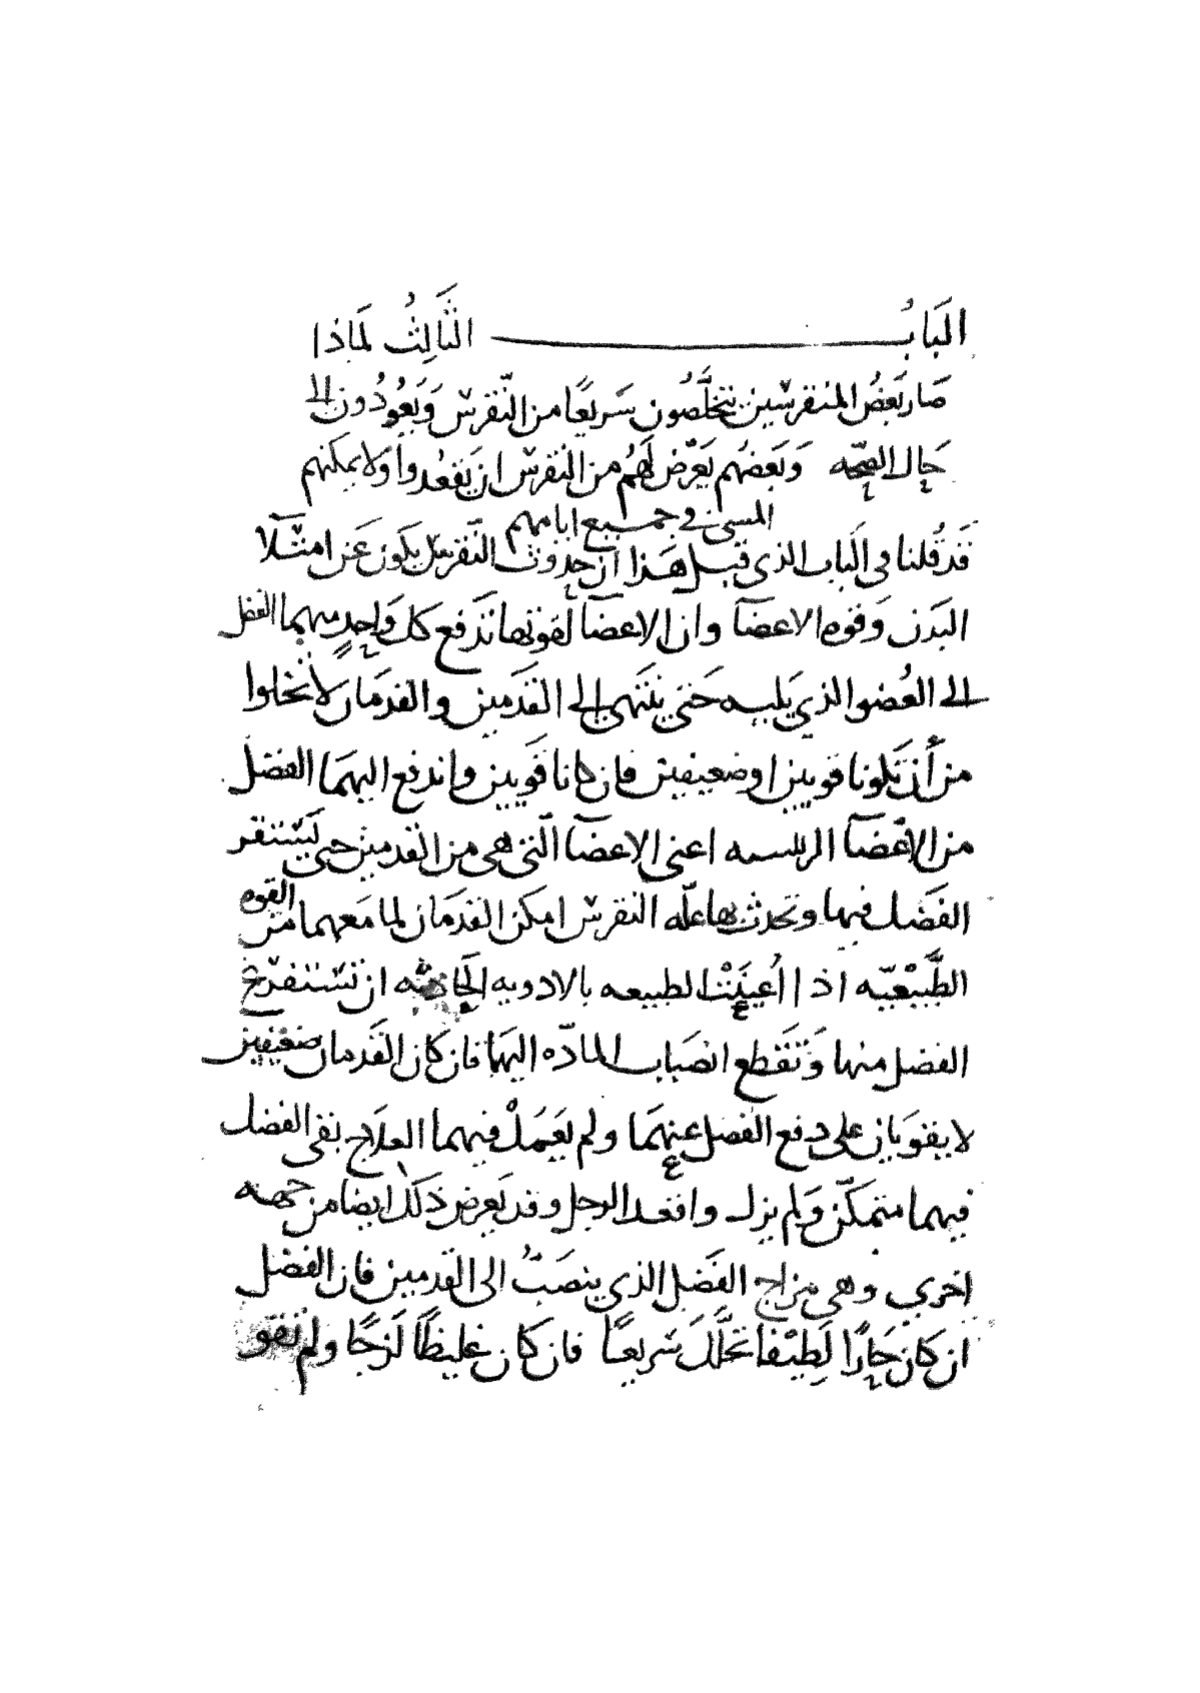 البَابُ الثَّالِثُ لمَاذا
صَار بَعضُ المنقرسين يتخلَّصُون سَريعًا من النّقرس وَيَعُودُون الى
حَال الصّحّه وَبَعضهم يَعرّض لَهُم من النقرس ان يَقعُدوا ولا يمكنهم
المشى فى جميع ايامهم
قَد قُلنا فى البَاب الذى قبل هَذا ان حدوث النّقرس يكون عَن امتلآ
البَدَن وَقوه الاعضآ وان الاعضآ لقوتها تَدفع كل وَاحِدٍ منهما الفضل
الى العُضو الذي يَليه حَتى ينتَهى الى القدَمين والقدَمان لا تخلوا
من أن يَكونا قويين او ضعيفين فان كانا قَويين واندفع اليهمَا الفضل
من الاعْضآ الرئيسه اعنى الاعضآ الّتى هى من القدمين حتى يَستنقر
الفَضل فيها وتحدث بها علّه النقرس امكن القدَمان لما مَعهما من القوه
الطَّبيْعيّه اذا أُعينَتْ الطبيعه بالادويه الحَاده ان تستنفرغ
الفضل منها وَتَقطع انصَباب المادّه اليهَا فان كان القَدمان ضعيفين
لا يقوَيان على دفع الفضل عنهمَا ولم يعَمَلْ فيهما العلَاج بقى الفضل
فيهما متمكّن وَلم يزل واقعد الرجل وقد يَعرض ذَلَك ايضا من جهه
اخرى وهى مزاج الفَضل الذي ينصَبّ الى القَدمين فان الفضل
ان كان حَارًا لَطِيْفا تحَلَّلَ سَريعًا فان كان غليظًا لَزجًا ولم تقو